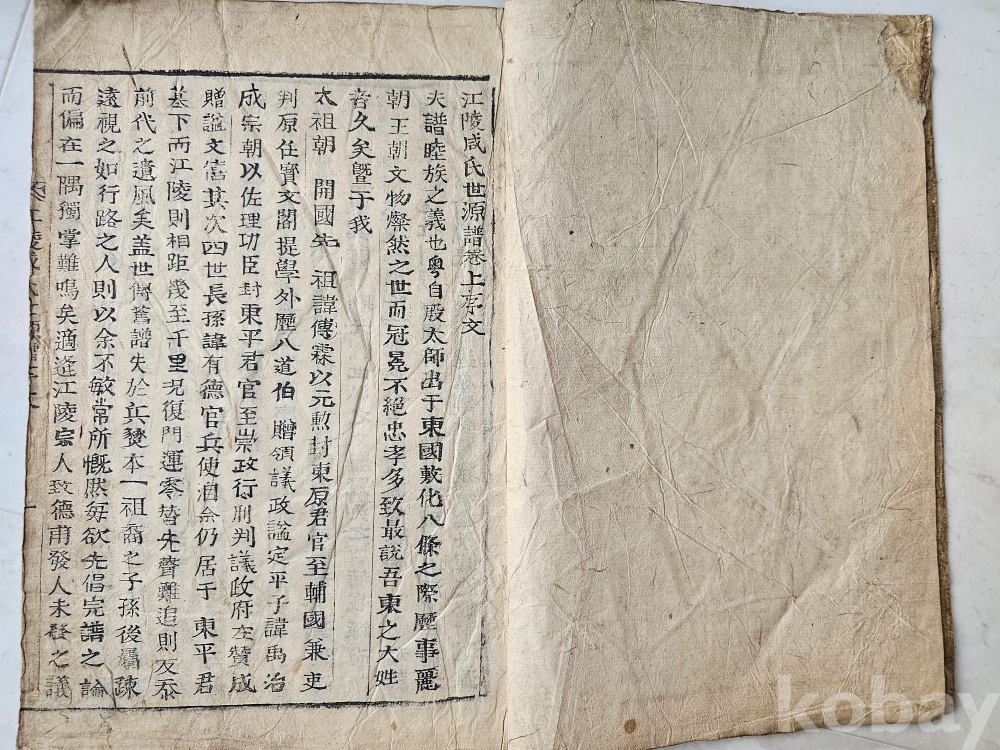 江陵咸氏世源譜卷上序文
夫譜睦族之義也粤自殷太師出于東國敷化八條之際歷事麗
朝王朝文物燦然之世而冠冕不絕忠孝多致最說吾東之大姓
者久矣曁于我
太祖朝 開國先 祖諱傅霖以元勲封東原君官至輔國兼吏
判原任寶文閣提學外歷八道伯 贈領議政謚定平子諱禹治
成宗朝以佐理功臣封東平君官至崇政行刑判議政府左贊成
贈謚文僖其次四世長孫諱有德官兵使洎余仍居于 東平君
墓下而江陵則相距幾至千里况復門運零替先聲難追則友忝
前代之遺風矣盖世傳舊譜失於兵燹本一祖裔之子孫後屬疎
遠視之如行路之人則以余不敏常所慨然每欲先倡完譜之論
而偏在一隅獨掌難鳴矣適逢江陵宗人致德甫發人未發之議
kobay